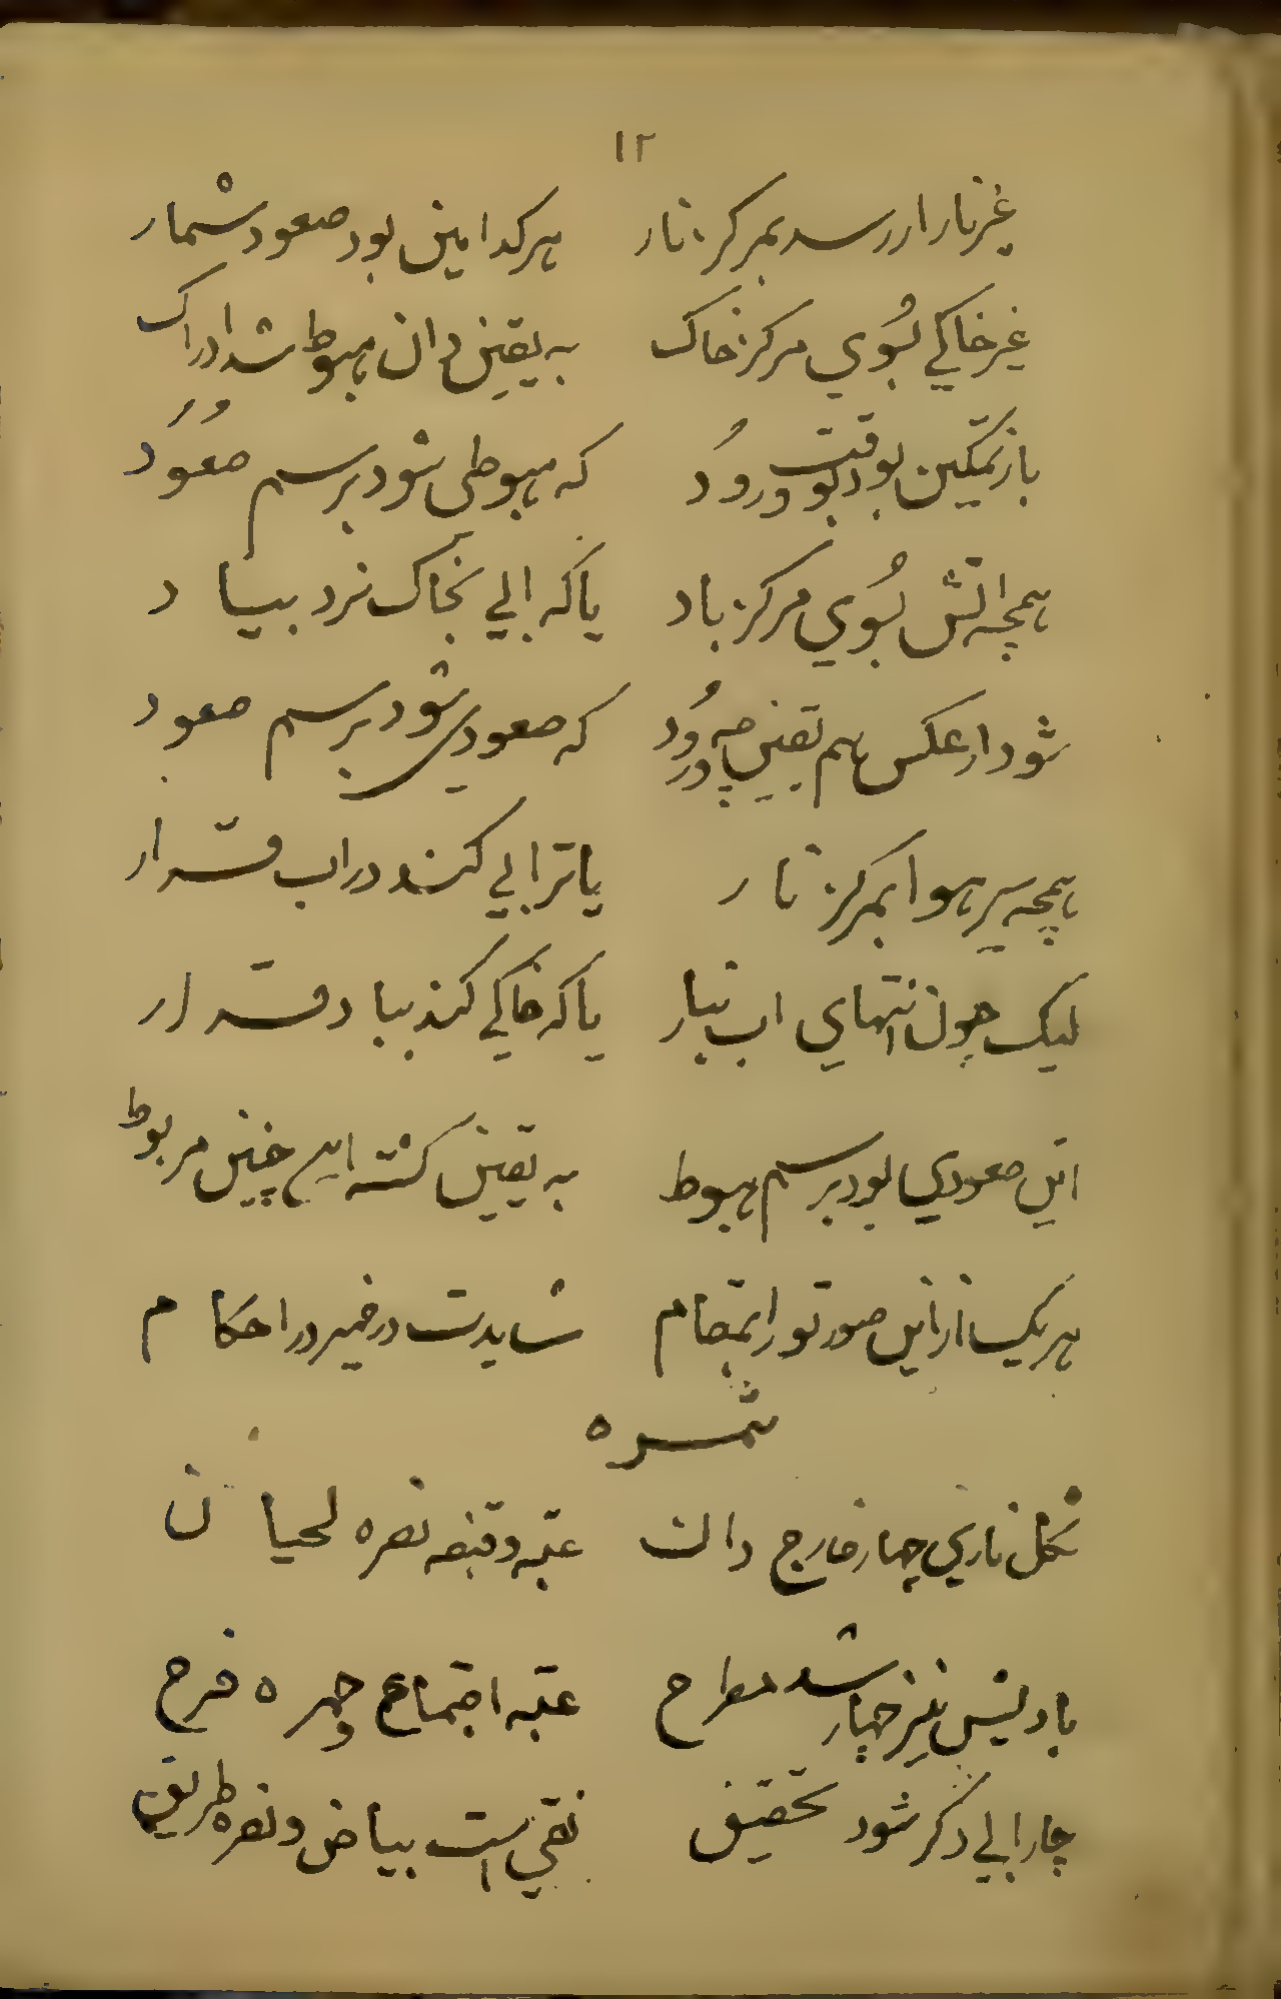 ١٢
غیر نار ار رسد بمرکز نار هرکدامین بود صعود شمار
غیر خاکے بسُوی مرکز خاک به یقین دان هبوط شد ادراک
باز تمکین بود بوقت ورُود که هبوطی شود برسم صعُود
همچه اتش بسُوی مرکز باد یا که ابی بخاک نرد بیساد
شود ار عکس هم یقین چه ورُود که صعودی شود برسم صعود
همچه سیر هوا بمرکز نار یا ترابی کند در اب قرار
لیک چون انتهای اب بنار یا که خاکے کند بباد قرار
این صعودی بود برسم هبوط به یقین کشته این چنین مربوط
هر یک از این صورتورا بمقام شایدت در ضمیر در احکام
ثمره
شکل ناری چهار خارج دان عتبه و قبضه نصره لحیان
بادیش نیز چهار شد مطرح عتبه اجتماع و حمره فرح
چار ابی دکر شود تحقیق نقی است بیاض و نصره طریق